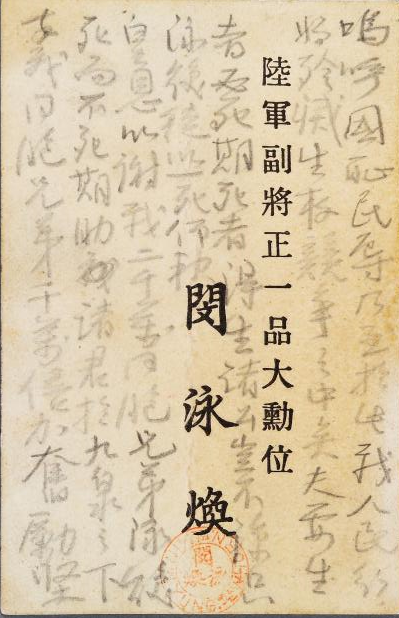 嗚呼國恥民辱乃至於此我人民行
將殄滅生存競爭之中矣夫要生
陸軍副將正一品大勳位
者必死期死者得生諸公豈不諒只
閔泳煥
泳煥徒以一死仰報
皇恩以謝我二千萬同胞兄弟泳煥
死而不死期助諸君於九泉之下
幸我同胞兄弟千萬倍加奮勵堅